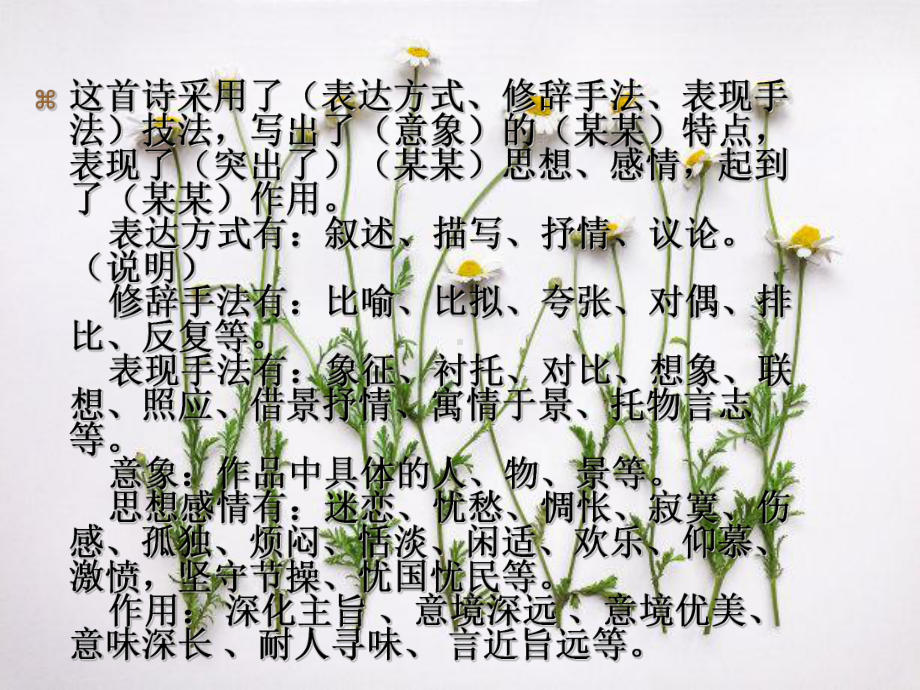 这首诗采用了（表达方式、修辞手法、表现手
法）技法，写出了（意象）的（某某）特点，
表现了（突出了）（某某）思想、感情，起到
了（某某）作用。
表达方式有：叙述、描写、抒情、议论。
（说明）
修辞手法有：比喻、比拟、夸张、对偶、排
比、反复等。
表现手法有：象征、衬托、对比、想象、联
想、照应、借景抒情、寓情于景、托物言志
等。
意象：作品中具体的人、物、景等。
思想感情有：迷恋、忧愁、惆怅、寂寞、伤
感、孤独、烦闷、恬淡、闲适、欢乐、仰慕、
激愤，坚守节操、忧国忧民等。
作用： 深化主旨 、意境深远 、意境优美、
意味深长 、耐人寻味、 言近旨远等。